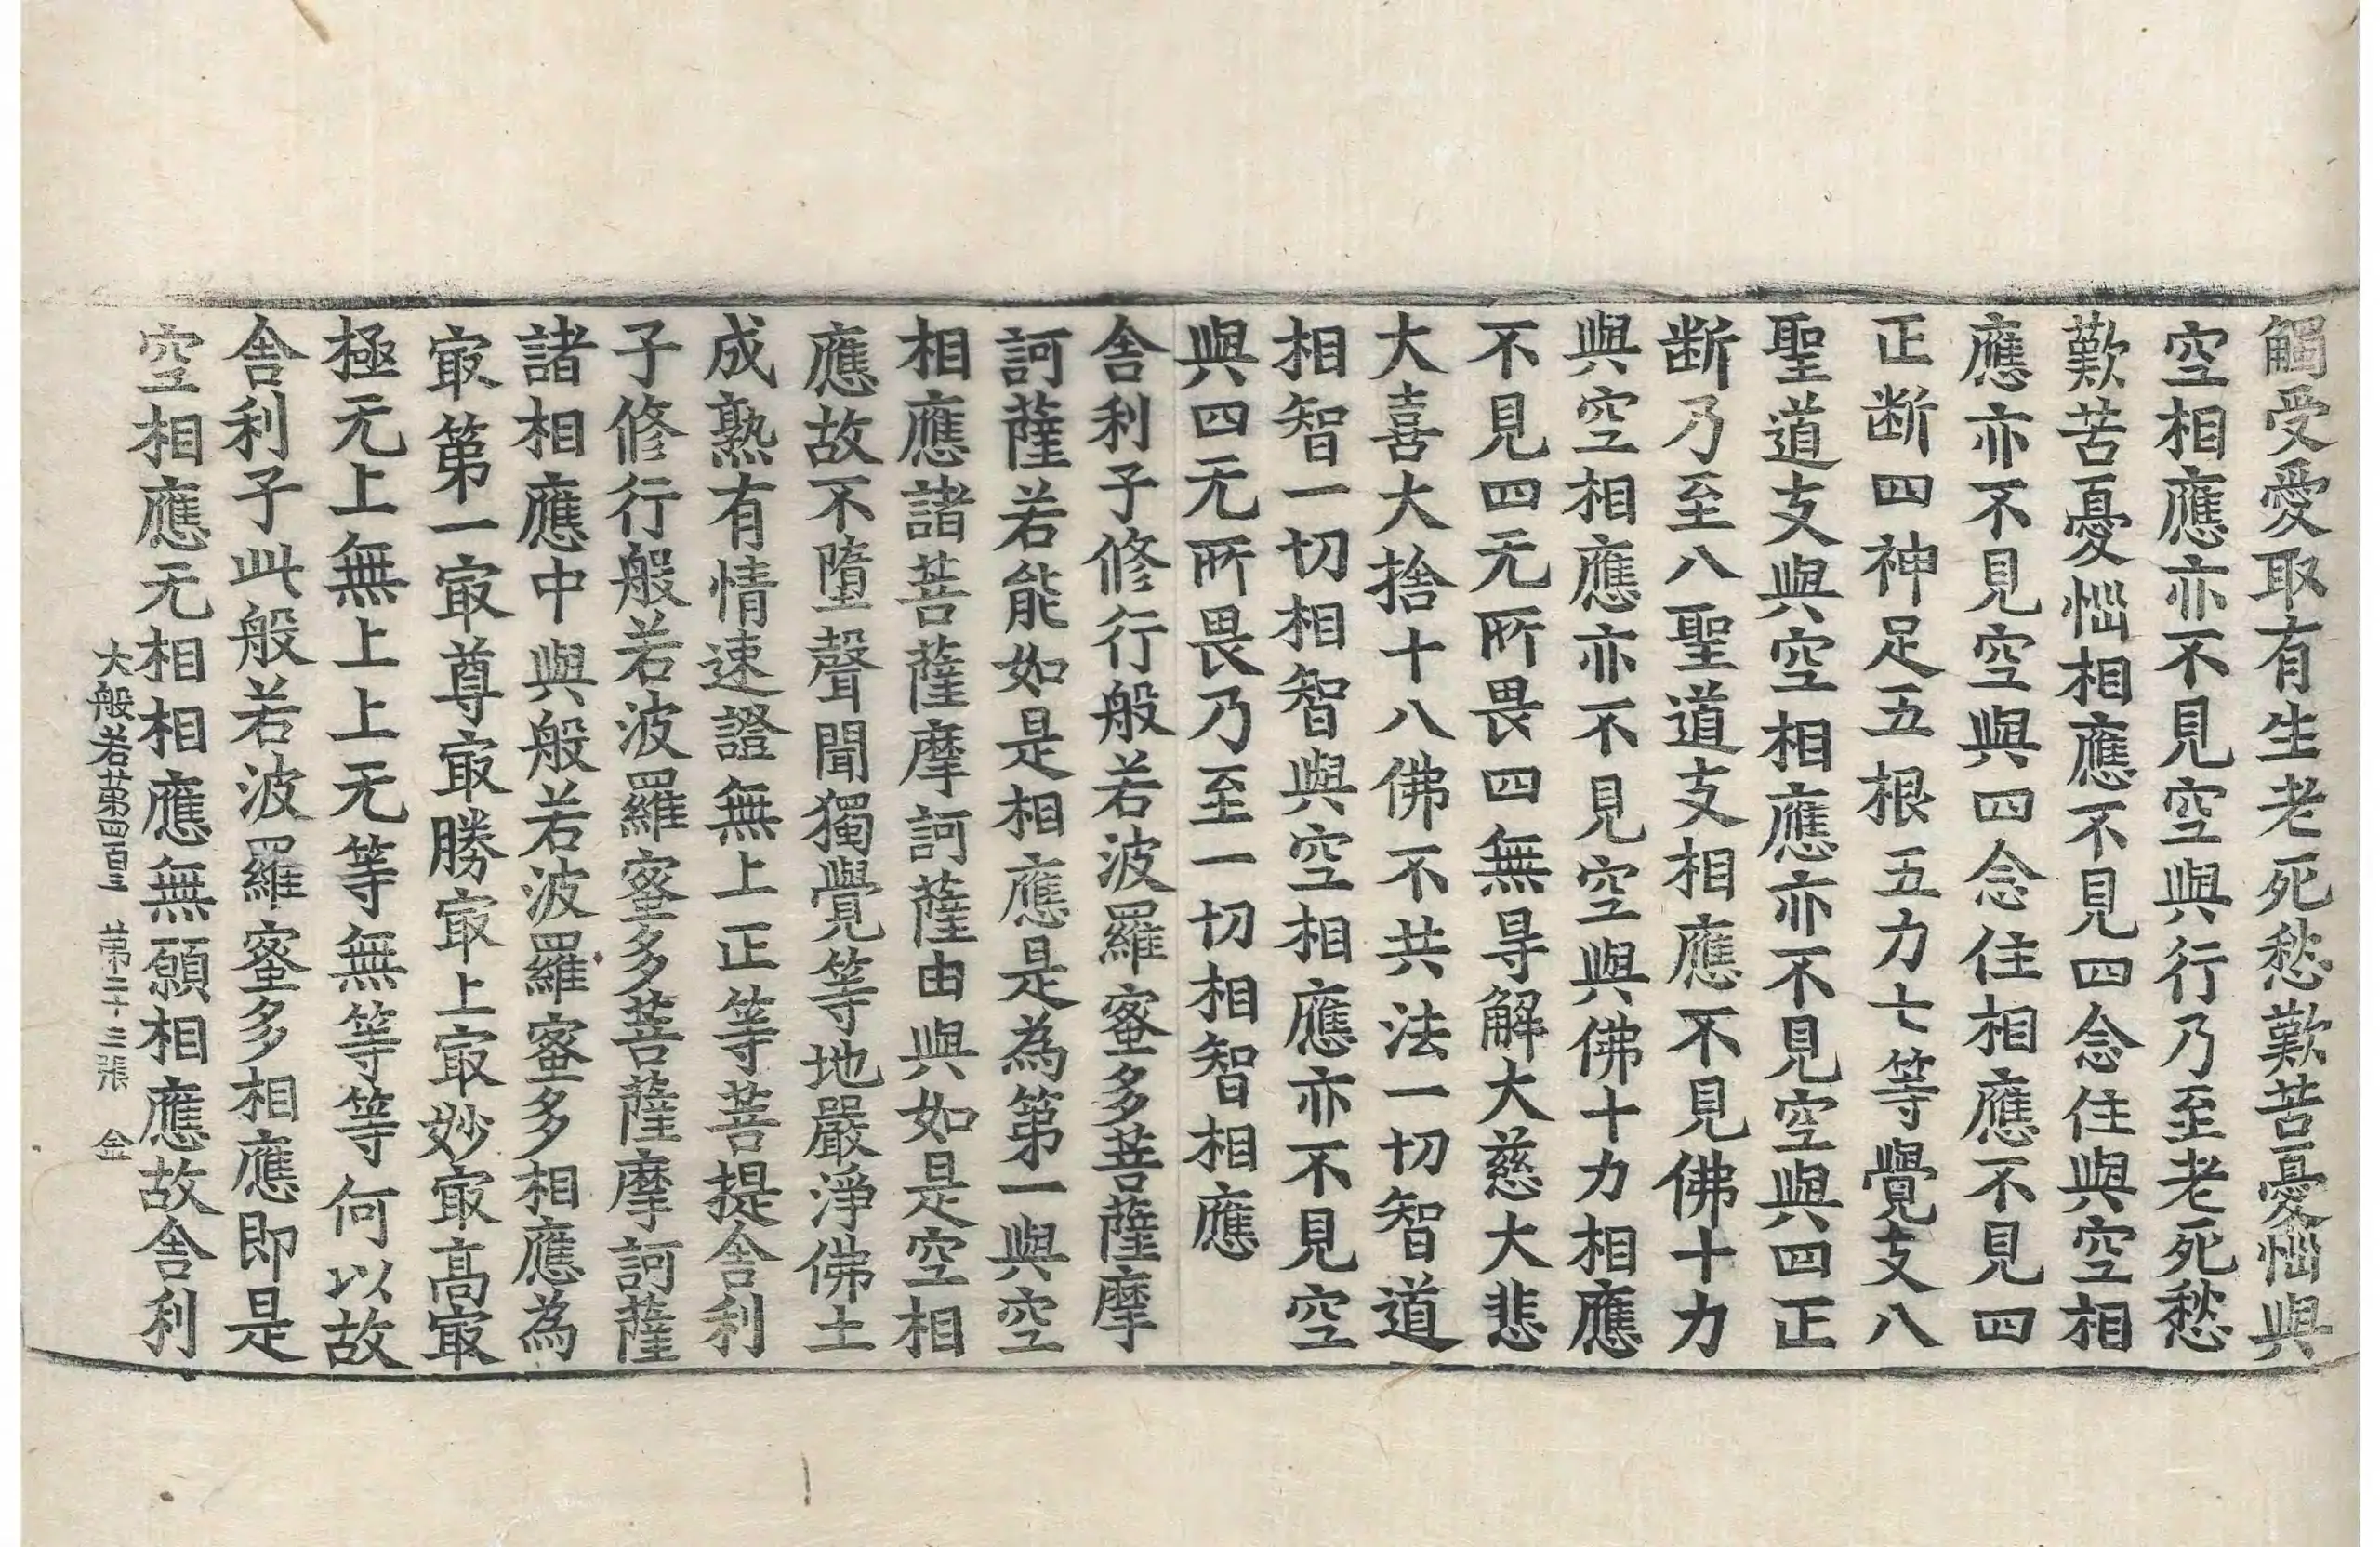 觸受愛取有生老死愁歎苦憂惱與
空相應亦不見空與行乃至老死愁
歎苦憂惱相應不見四念住與空相
應亦不見空與四念住相應不見四
正断四神足五根五力七等覺支八
聖道支與空相應亦不見空與四正
断乃至八聖道支相應不見佛十力
與空相應亦不見空與佛十力相應
不見四无所畏四無㝵解大慈大悲
大喜大捨十八佛不共法一切智道
相智一切相智與空相應亦不見空
與四无所畏乃至一切相智相應
舍利子修行般若波羅蜜多菩薩摩
訶薩若能如是相應是為第一與空
相應諸菩薩摩訶薩由與如是空相
應故不墮聲聞獨覺等地嚴淨佛土
成熟有情速證無上正等菩提舍利
子修行般若波羅蜜多菩薩摩訶薩
諸相應中與般若波羅蜜多相應為
㝡第一㝡尊㝡勝㝡上㝡妙㝡高㝡
極无上無上上无等無等等何以故
舍利子此般若波羅蜜多相應即是
空相應无相相應無願相應故舍利
大般若第四百三 第二十三張 金